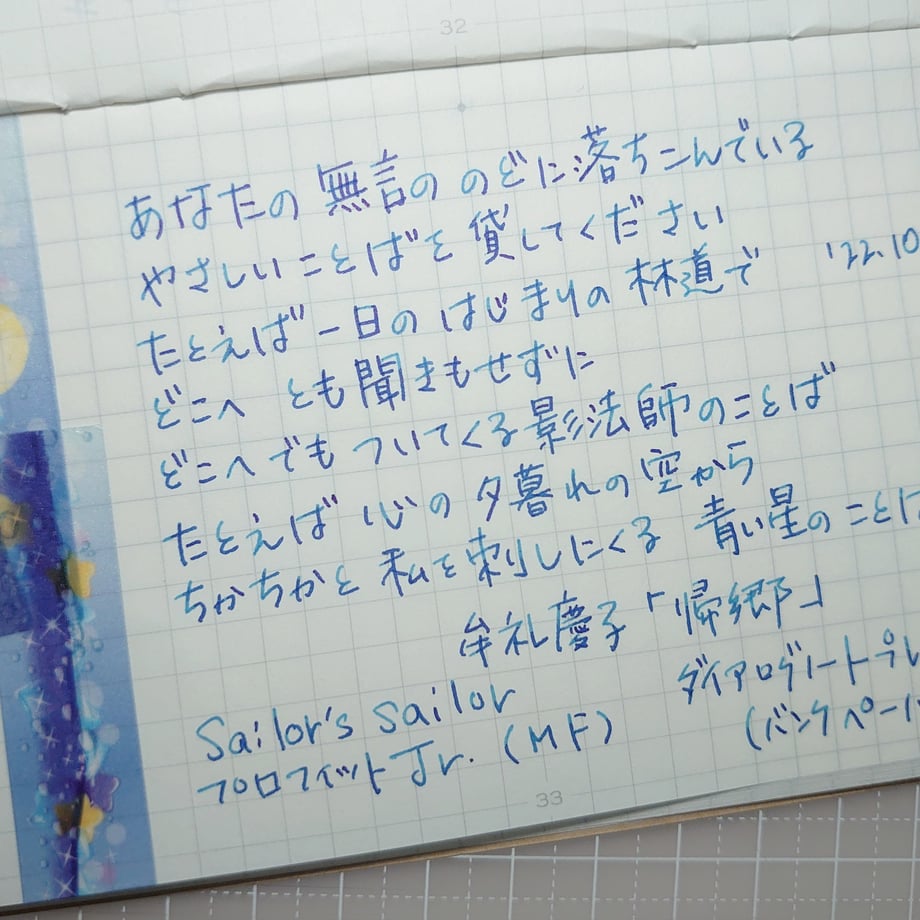 32
あなたの 無言の のどに落ちこんでいる
やさしいことばを 貸してください
たとえば一日の はじまりの 林道で
'22.10
どこへ とも聞きもせずに
どこへでも ついてくる影法師のことば
たとえば 心の 夕暮れの 空から
ちかちかと 私を刺しにくる 青い星の ことば
牟礼慶子「帰郷」
Sailor's sailor
ダイアログノート プレ
プロフィットJr. (MF)
(バンクペーパ
33